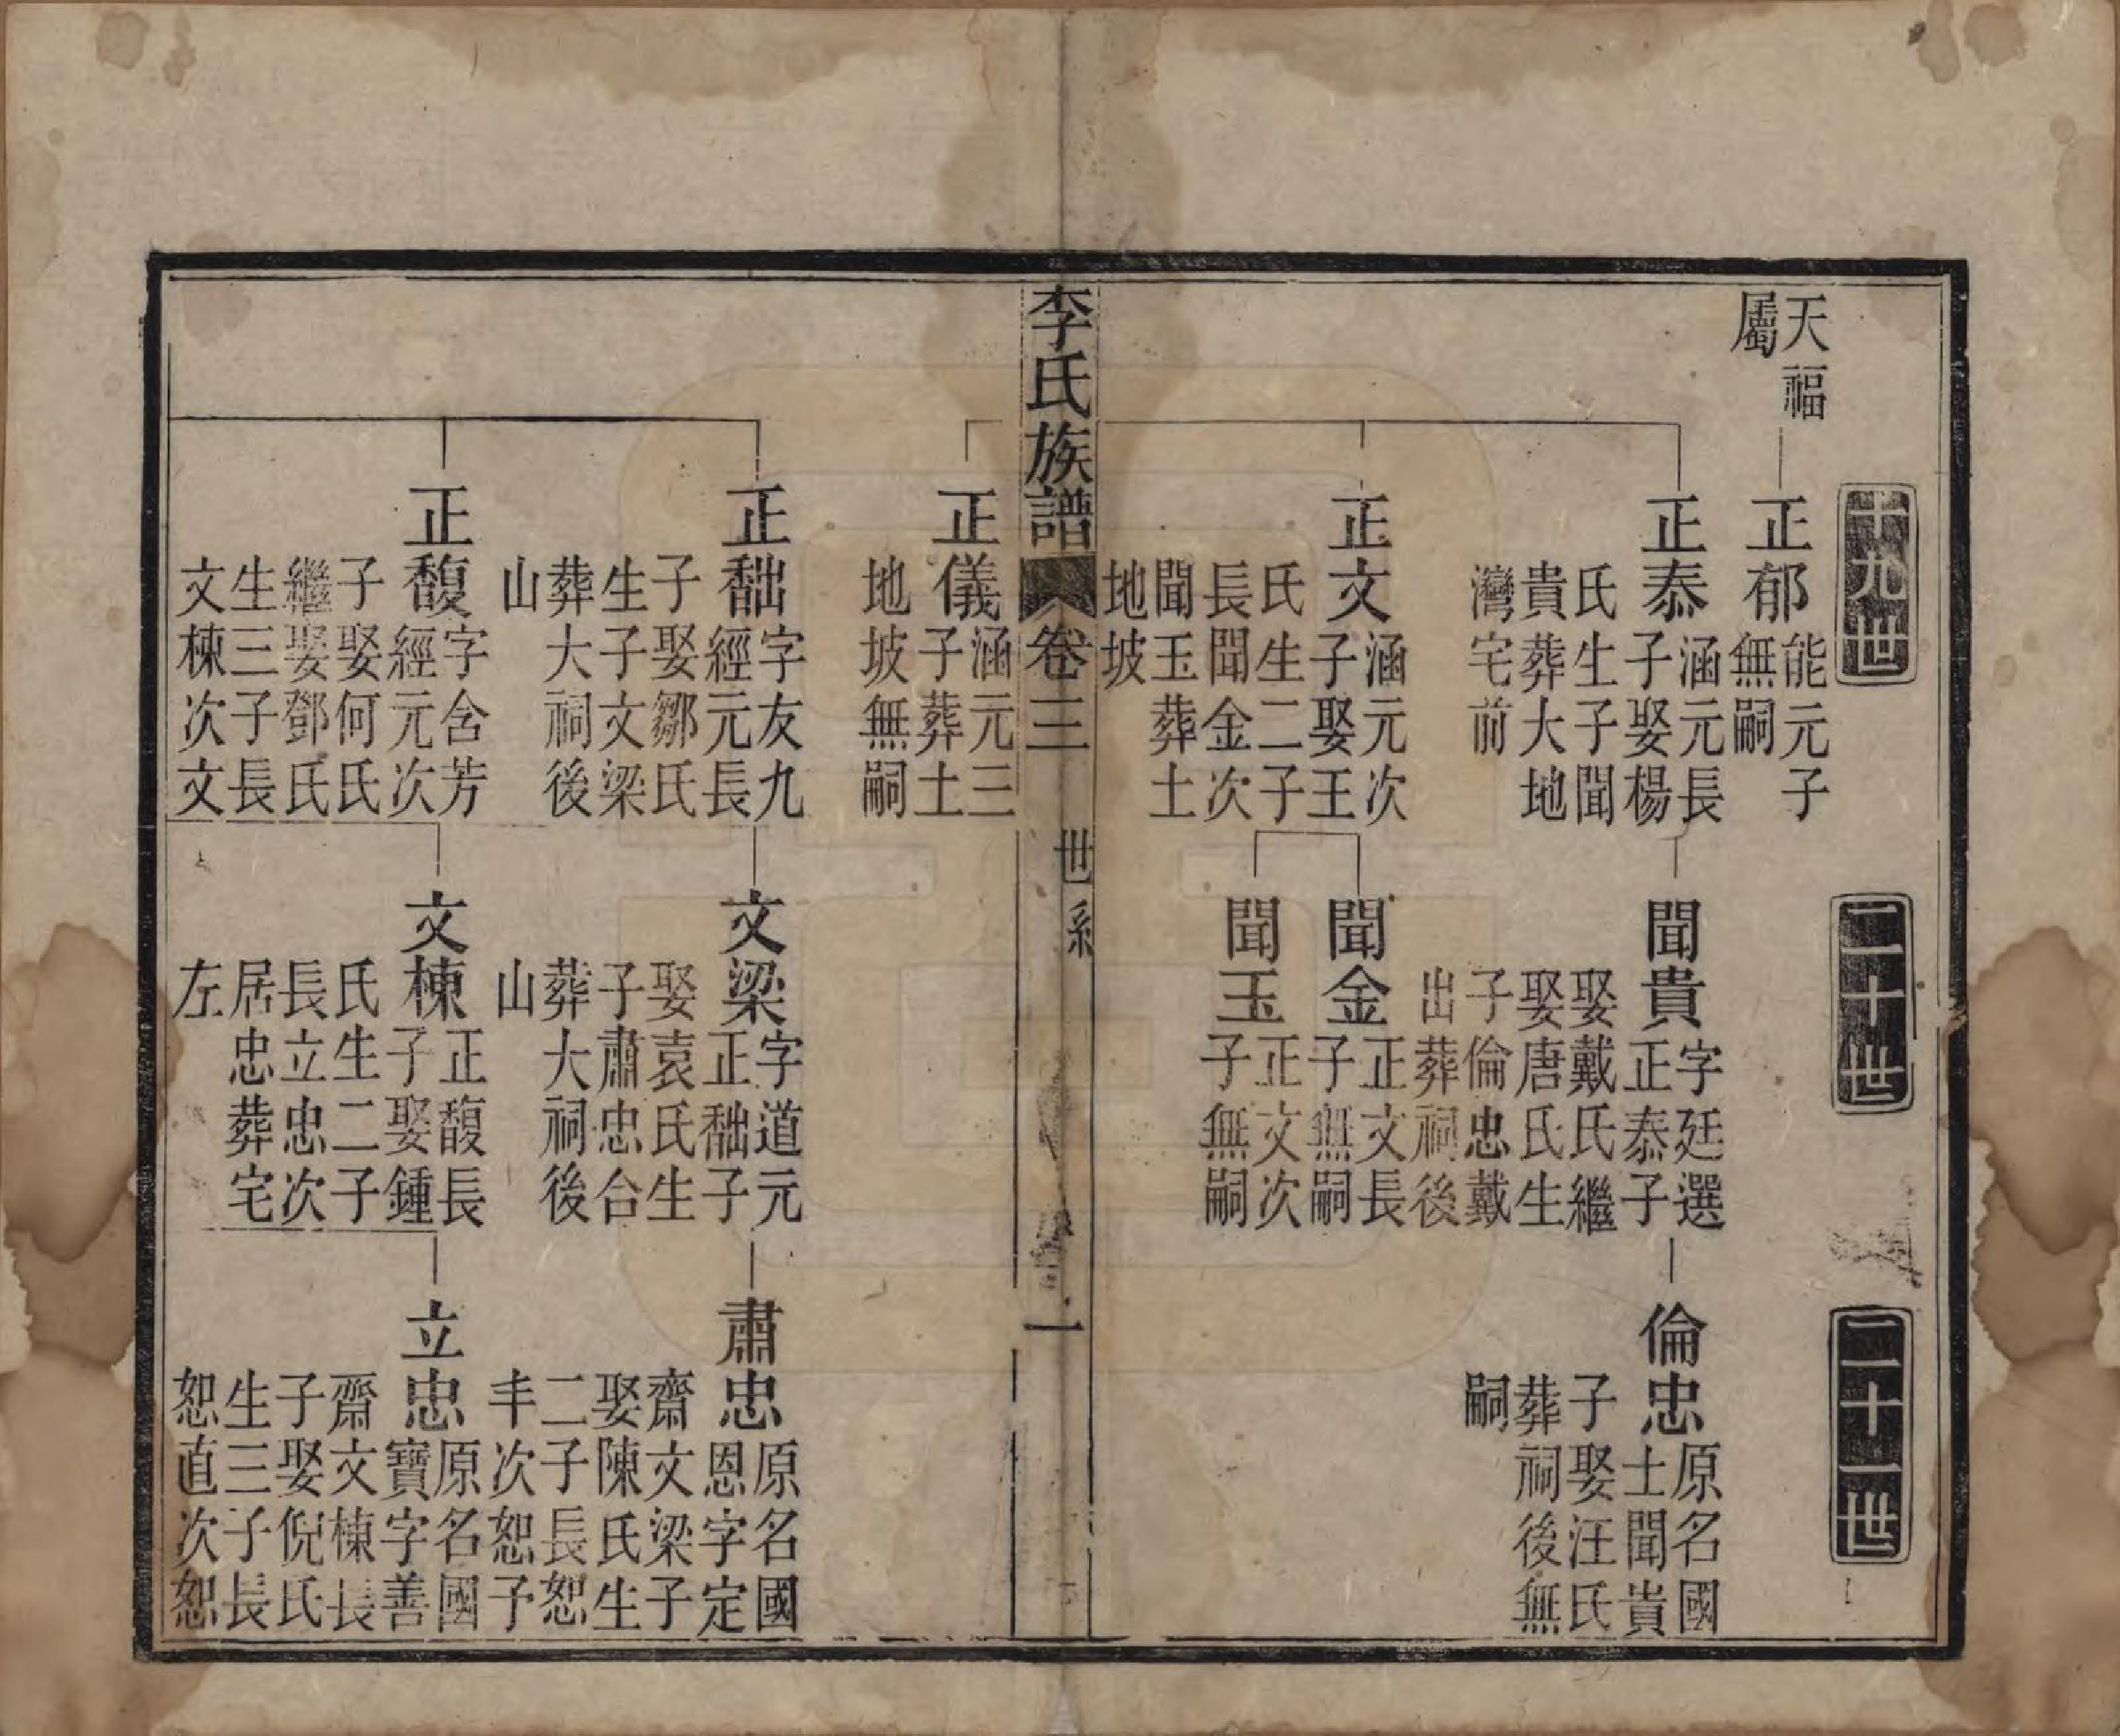 天福
屬
十九世
正郁
能元子
無嗣
正泰
涵元長
子娶楊
氏生子聞
貴葬大地
灣宅前
正文
涵元次
子娶王
氏生二子
長聞金次
聞玉葬土
地坡
二十世
聞貴
字廷選
正泰子
娶戴氏繼
娶唐氏生
子倫忠戴
出葬祠後
聞金
正文長
子無嗣
聞玉
正文次
子無嗣
二十一世
倫忠
原名國
士聞貴
子娶汪氏
葬祠後無
嗣
李氏族譜
卷三
世系
一
正儀
涵元三
子葬土
地坡無嗣
正䅳
字友九
經元長
子娶鄒氏
生子文梁
葬大祠後
山
正馥
字含芳
經元次
子娶何氏
繼娶鄧氏
生三子長
文棟次文
文梁
字道元
正䅳子
娶袁氏生
子肅忠合
葬大祠後
山
文棟
正馥長
子娶鍾
氏生二子
長立忠次
居忠葬宅
左
肅忠
原名國
恩字定
齋文梁子
娶陳氏生
二子長恕
丰次恕予
立忠
原名國
寶字善
齋文棟長
子娶倪氏
生三子長
恕直次恕